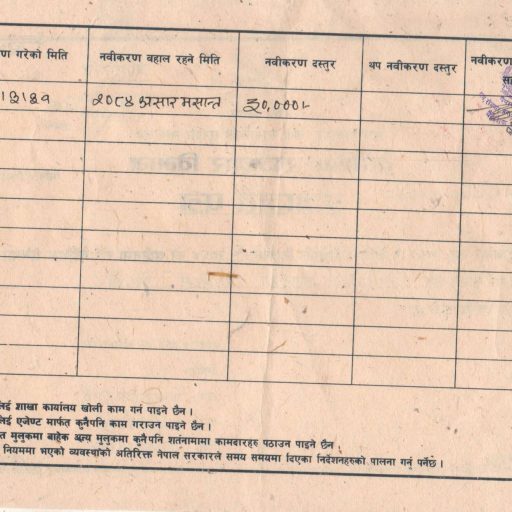 ण गरेको मिति नवीकरण बहाल रहने मिति नवीकरण दस्तुर थप नवीकरण दस्तुर नवीकरण
२०८४ असार मसान्त
लाई शाखा कार्यालय खोली काम गर्न पाइने छैन ।
लाई एजेण्ट मार्फत कुनैपनि काम गराउन पाइने छैन ।
त मुलुकमा बाहेक अन्य मुलुकमा कुनैपनि शर्तनामामा कामदारहरु पठाउन पाइने छैन .
नियममा भएको व्यवस्थाको अतिरिक्त नेपाल सरकारले समय समयमा दिएका निर्देशनहरुको पालना गर्नु पर्नेछ ।